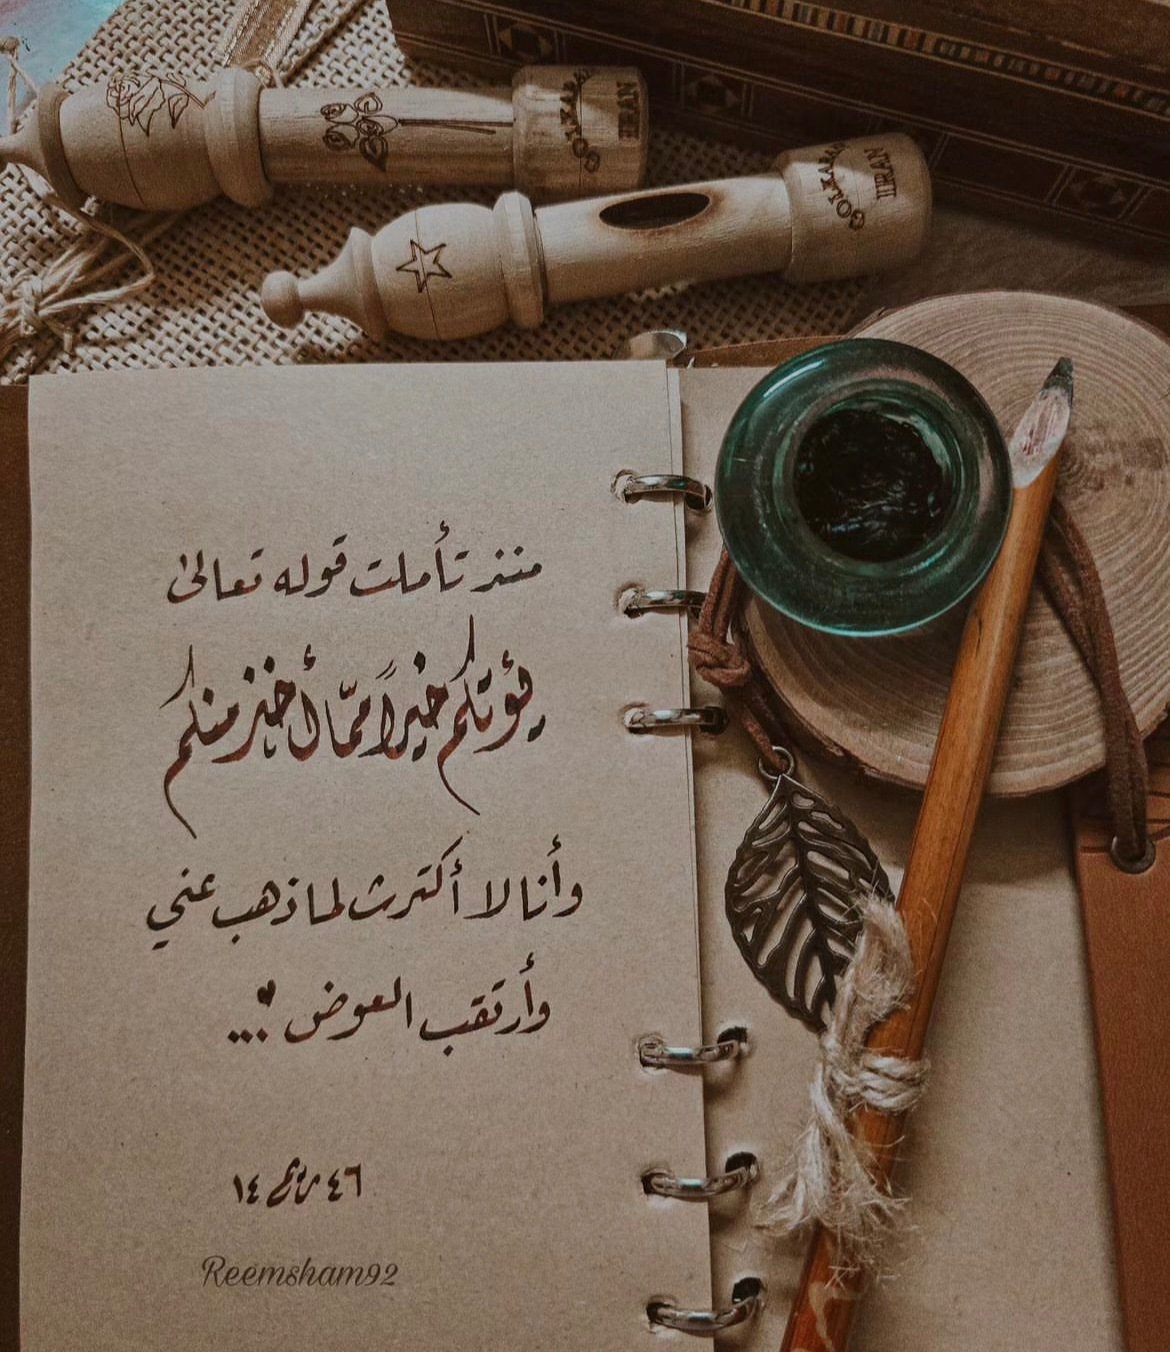 GOLKAR
IRAN
GOLKARAN
IRAN
منذ تأملت قوله تعالى
يؤتكم خيراً ممّا أُخذ منكم
وأنا لا أكترث لما ذهب عني
وأرتقب العوض ...
١٤ ريم ٤٦
Reemsham92